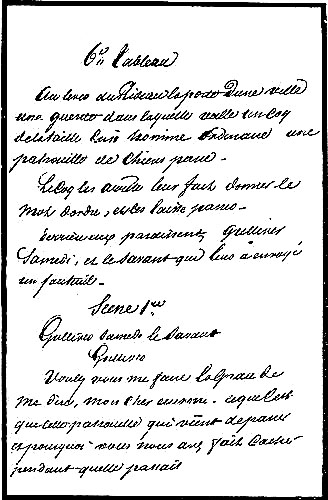 6e Tableau
Au lever du Rideau la porte d'une ville
une guerite dans laquelle veille un coq
de la taille d'un homme ordinaire une
patrouille de chiens passe -
Le coq les arrête leur fait donner le
mot d'ordre, et les laisse passer -
derrière eux paraissent, Gulliver
Samedi, et le Savant qui leur a envoyé
un fauteuil -
Scene 1ere
Gulliver Samedi le Savant
Gulliver
Voulez vous me faire la grace de
me dire, mon cher ce que c'est
que cette patrouille qui vient de passer
et pourquoi vous nous avez fait cacher
pendant qu'elle passait